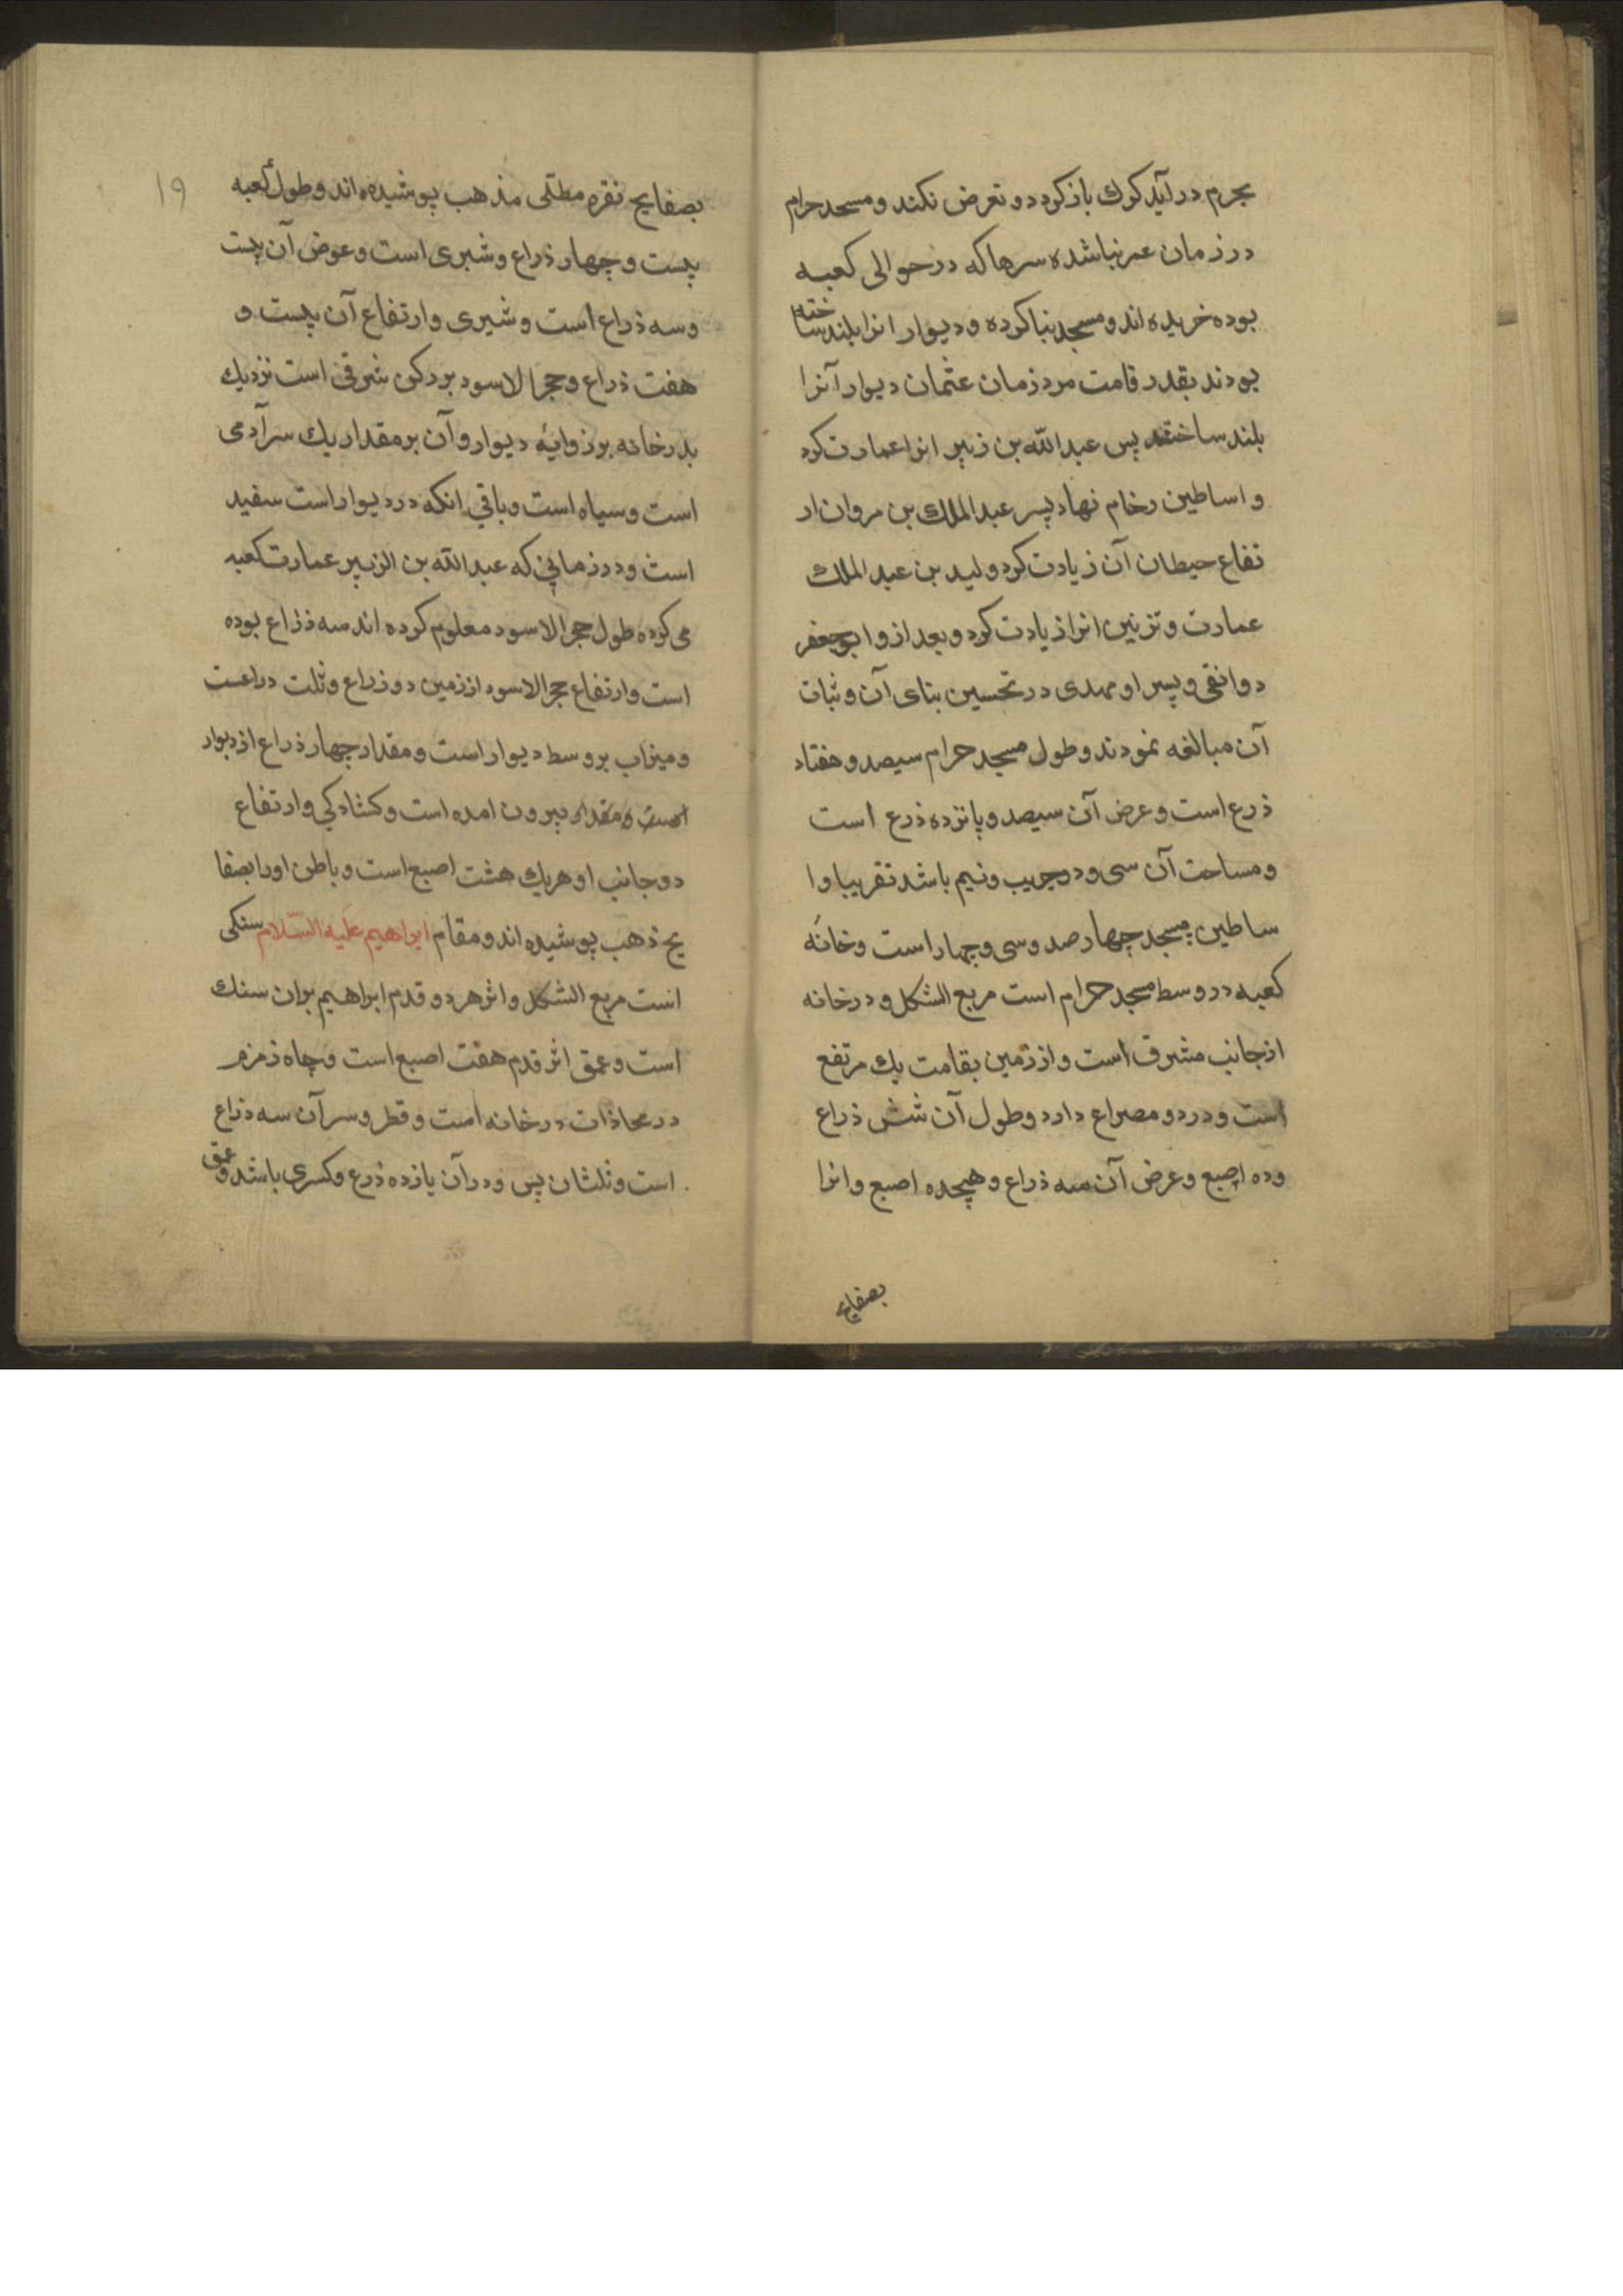 بحرم در آید کرک باز کردد و تعرض نکند و مسجد حرام
در زمان عمر بنا شده سرها که در حوالی کعبه
بوده خریده اند و مسجد بنا کرده و دیوار انرا بلند ساخته
بودند بقدر قامت مرد زمان عثمان دیوار آنرا
بلند ساختند پس عبدالله بن زبیر انرا عمارت کرد
و اساطین رخام نهاد پسر عبدالملك بن مروان ار
تفاع حیطان آن زیادت کرد ولید بن عبدالملك
عمارت و تزیین انرا زیادت کرد و بعد ازو ابوجعفر
دوانقی و پسر او مهدی در تحسین بنای آن و ثبات
آن مبالغه نمودند و طول مسجد حرام سیصد و هفتاد
ذرع است و عرض آن سیصد و پانزده ذرع است
و مساحت آن سی و دو جریب و نیم باشد تقریبا و ا
ساطین مسجد چهار صد و سی و چهار است و خانهٔ
کعبه در وسط مسجد حرام است مربع الشکل و در خانه
از جانب مشرق است و از زمین بقامت یك مرتفع
است و در دو مصراع دارد و طول آن شش ذراع
وده اصبع و عرض آن سه ذراع و هیجده اصبع و انرا
بصفایح
۱۹
بصفایح نقره مطلی مذهب پوشیده اند و طول کعبه
بیست و چهار ذراع و شبری است و عرض آن بیست
و سه ذراع است و شبری و ارتفاع آن بیست و
هفت ذراع و حجر الاسود بر رکن شرقی است نزدیك
بدر خانه بر زوایهٔ دیوار و آن بر مقدار یك سر آدمی
است و سیاه است و باقی انکه در دیوار است سفید
است و در زمانی که عبدالله بن الزبیر عمارت کعبه
می کرده طول حجر الاسود معلوم کرده اند سه ذراع بوده
است و ارتفاع حجر الاسود از زمین دو ذراع و ثلت دراعست
و میزاب بر وسط دیوار است و مقدار چهار ذراع از دیوار
بیرون امده است و کشادکی و ارتفاع
دو جانب او هریك هشت اصبع است و باطن اورا بصفا
یح ذهب پوشیده اند و مقام ابراهیم علیه السّلام سنکی
است مربع الشکل و اثر هر دو قدم ابراهیم بران سنك
است و عمق اثر قدم هفت اصبع است و چاه زمزم
در محاذات در خانه است و قطر و سر آن سه ذراع
است و ثلثان پس و در آن یازده ذرع و کسری باشد و عمق